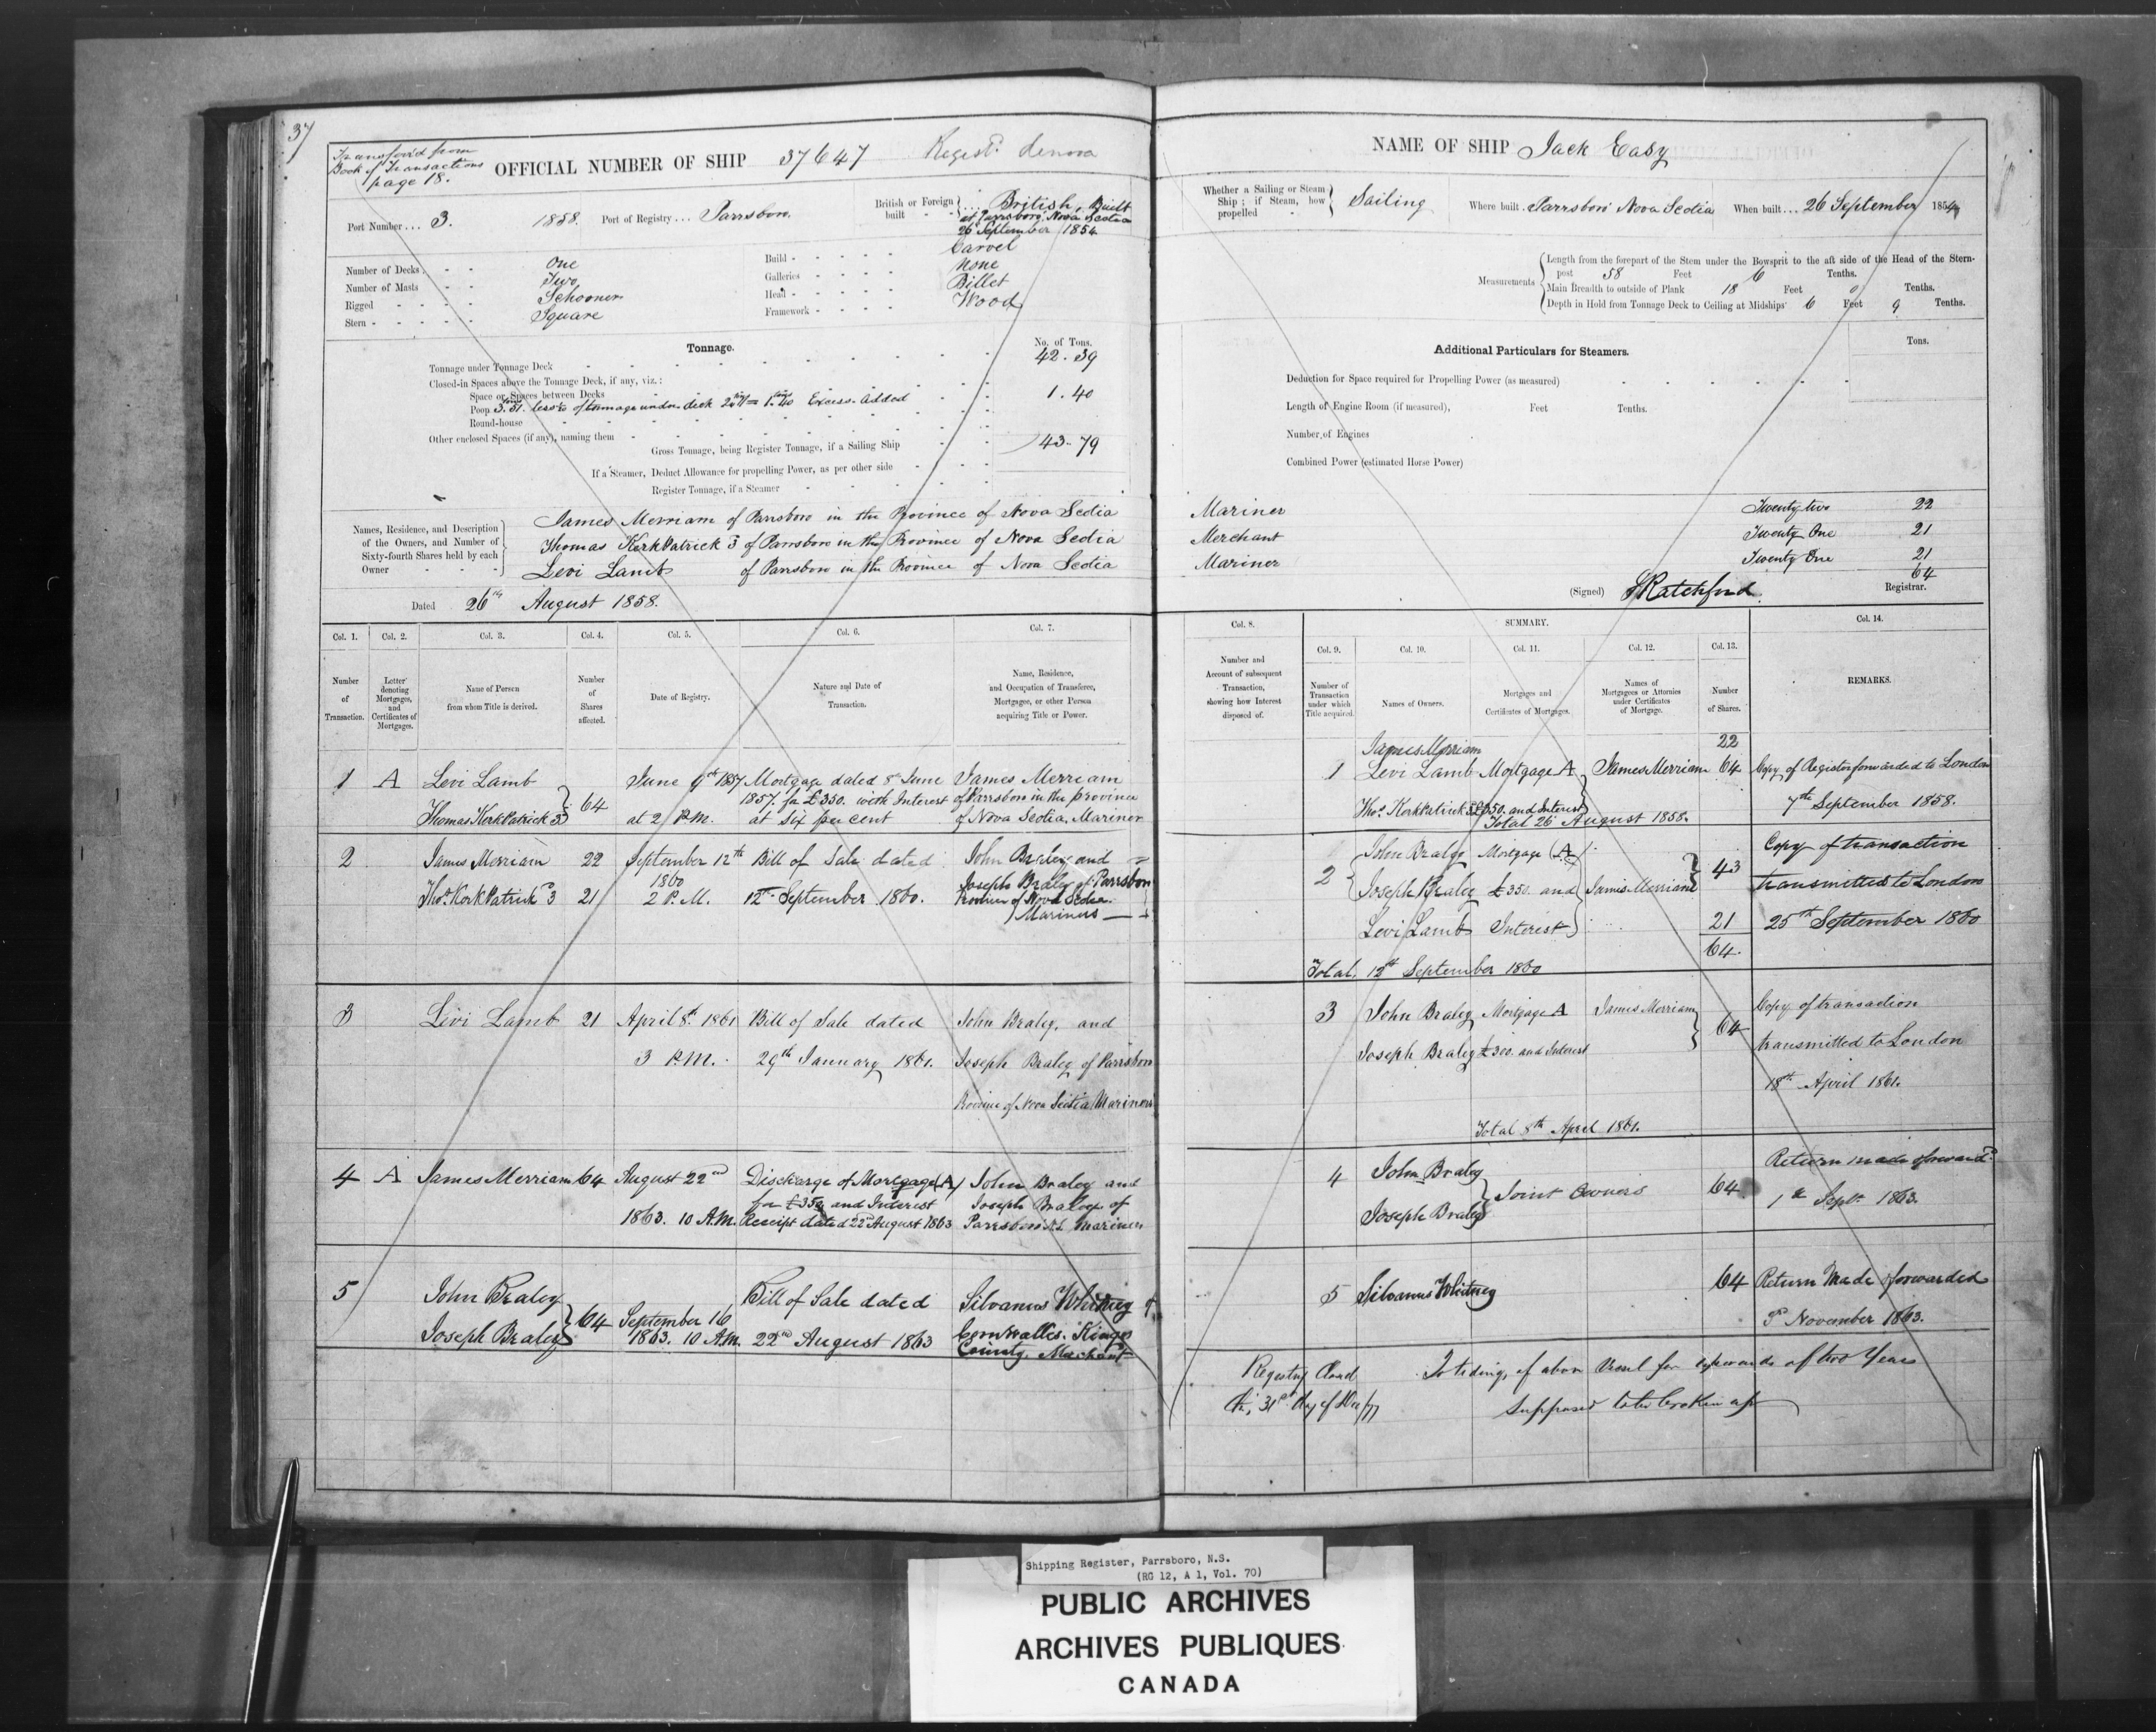 37
Transfer'd from
Book of Transactions
page 18.
OFFICIAL NUMBER OF SHIP 37647 Regist.d denova
Port Number ... 3. 1858. Port of Registry ... Parrsboro.
British or Foreign built - - British, Built
at Parrsboro, Nova Scotia
26 September 1854
Number of Decks - - One
Number of Masts - - Two
Rigged - - - - Schooner
Stern - - - - - Square
Build - - - - - Carvel
Galleries - - - - None
Head - - - - - Billet
Framework - - - - Wood
Tonnage.
No. of Tons.
Tonnage under Tonnage Deck 42.39
Closed-in Spaces above the Tonnage Deck, if any, viz.:
Space or Spaces between Decks
Poop 3.51 less of tonnage under deck = 1.40 Excess added 1.40
Round-house
Other enclosed Spaces (if any), naming them
Gross Tonnage, being Register Tonnage, if a Sailing Ship 43.79
If a Steamer, Deduct Allowance for propelling Power, as per other side
Register Tonnage, if a Steamer
Names, Residence, and Description
of the Owners, and Number of
Sixty-fourth Shares held by each
Owner - - - -
James Merriam of Parrsboro in the Province of Nova Scotia
Thomas KerkPatrick 3d of Parrsboro in the Province of Nova Scotia
Levi Lamb of Parrsboro in the Province of Nova Scotia
Dated 26th August 1858.
NAME OF SHIP Jack Easy
Whether a Sailing or Steam
Ship; if Steam, how
propelled - Sailing
Where built . Parrsboro Nova Scotia When built ... 26 September 1854
Measurements
Length from the forepart of the Stem under the Bowsprit to the aft side of the Head of the Stern-
post 58 Feet 6 Tenths.
Main Breadth to outside of Plank 18 Feet 0 Tenths.
Depth in Hold from Tonnage Deck to Ceiling at Midships 6 Feet 9 Tenths.
Additional Particulars for Steamers.
Tons.
Deduction for Space required for Propelling Power (as measured)
Length of Engine Room (if measured), Feet Tenths.
Number of Engines
Combined Power (estimated Horse Power)
Mariner Twenty two 22
Merchant Twenty One 21
Mariner Twenty One 21
64
(Signed) Ratchford Registrar.
Col. 1. Col. 2. Col. 3. Col. 4. Col. 5. Col. 6. Col. 7.
Number of Transaction.
Letter denoting Mortgages, and Certificates of Mortgages.
Name of Person from whom Title is derived.
Number of Shares affected.
Date of Registry.
Nature and Date of Transaction.
Name, Residence, and Occupation of Transferee, Mortgagee, or other Person acquiring Title or Power.
1 A Levi Lamb June 9th 1857 Mortgage dated 8th June James Merriam
64 1857. for £350. with Interest of Parrsboro in the province
Thomas KerkPatrick 3d at 2 P.M. at six per cent of Nova Scotia, Mariner
2 James Merriam 22 September 12th Bill of Sale dated John Braley and
1860 Joseph Braley of Parrsboro
Thos. KerkPatrick 3d 21 2 P.M. 12th September 1860. Province of Nova Scotia.
Mariners
3 Levi Lamb 21 April 8th 1861 Bill of Sale dated John Braley, and
3 P.M. 29th January 1861. Joseph Braley of Parrsboro
Province of Nova Scotia Mariners
4 A James Merriam 64 August 22nd Discharge of Mortgage (A) John Braley and
for £350 and Interest Joseph Braley of
1863. 10 A.M. Receipt dated 22d August 1863 Parrsboro N.S. Mariners
5 John Braley 64 Bill of Sale dated Silvanus Whitney of
September 16
Joseph Braley 1863. 10 A.M. 22nd August 1863 Cornwallis. Kings
County. Merchant
Col. 8. SUMMARY. Col. 14.
Col. 9. Col. 10. Col. 11. Col. 12. Col. 13.
Number and Account of subsequent Transaction, showing how Interest disposed of.
Number of Transaction under which Title acquired.
Names of Owners.
Mortgages and Certificates of Mortgages.
Names of Mortgagees or Attornies under Certificates of Mortgage.
Number of Shares.
REMARKS.
James Merriam 22
1 Levi Lamb Mortgage A James Merriam 64 Copy of Register forwarded to London
Thos. KerkPatrick 3d £350. and Interest 7th September 1858.
Total 26 August 1858.
John Braley Mortgage (A) Copy of transaction
2 Joseph Braley £350. and James Merriam 43 transmitted to London
Levi Lamb Interest 21 25th September 1860
64.
Total. 12th September 1860
3 John Braley Mortgage A James Merriam 64 Copy of transaction
Joseph Braley £300. and Interest transmitted to London
18th April 1861.
Total 8th April 1861.
4 John Braley Joint Owners 64 Return made forward.d
Joseph Braley 1st Sept. 1863.
5 Silvanus Whitney 64 Return Made forwarded
November 1863.
Registry Closed No tidings of above Vessel for upwards of two Years
this 31st day of Dec/77 supposed to be broken up
Shipping Register, Parrsboro, N.S.
(RG 12, A 1, Vol. 70)
PUBLIC ARCHIVES
ARCHIVES PUBLIQUES
CANADA